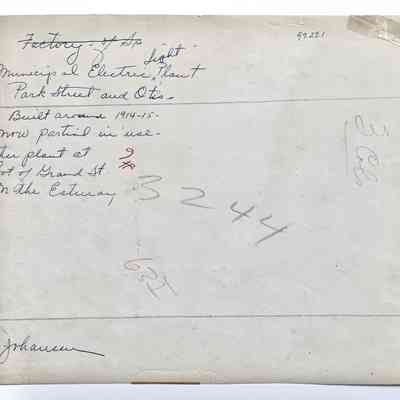 Factory of Sp
99221
Light
Municipal Electric Plant
Park Street and Otis -
Built around 1914-15 -
now partial in use -
plant at
ot of Grand St
on the Estuary
3244
3 Cols
632
Johansen